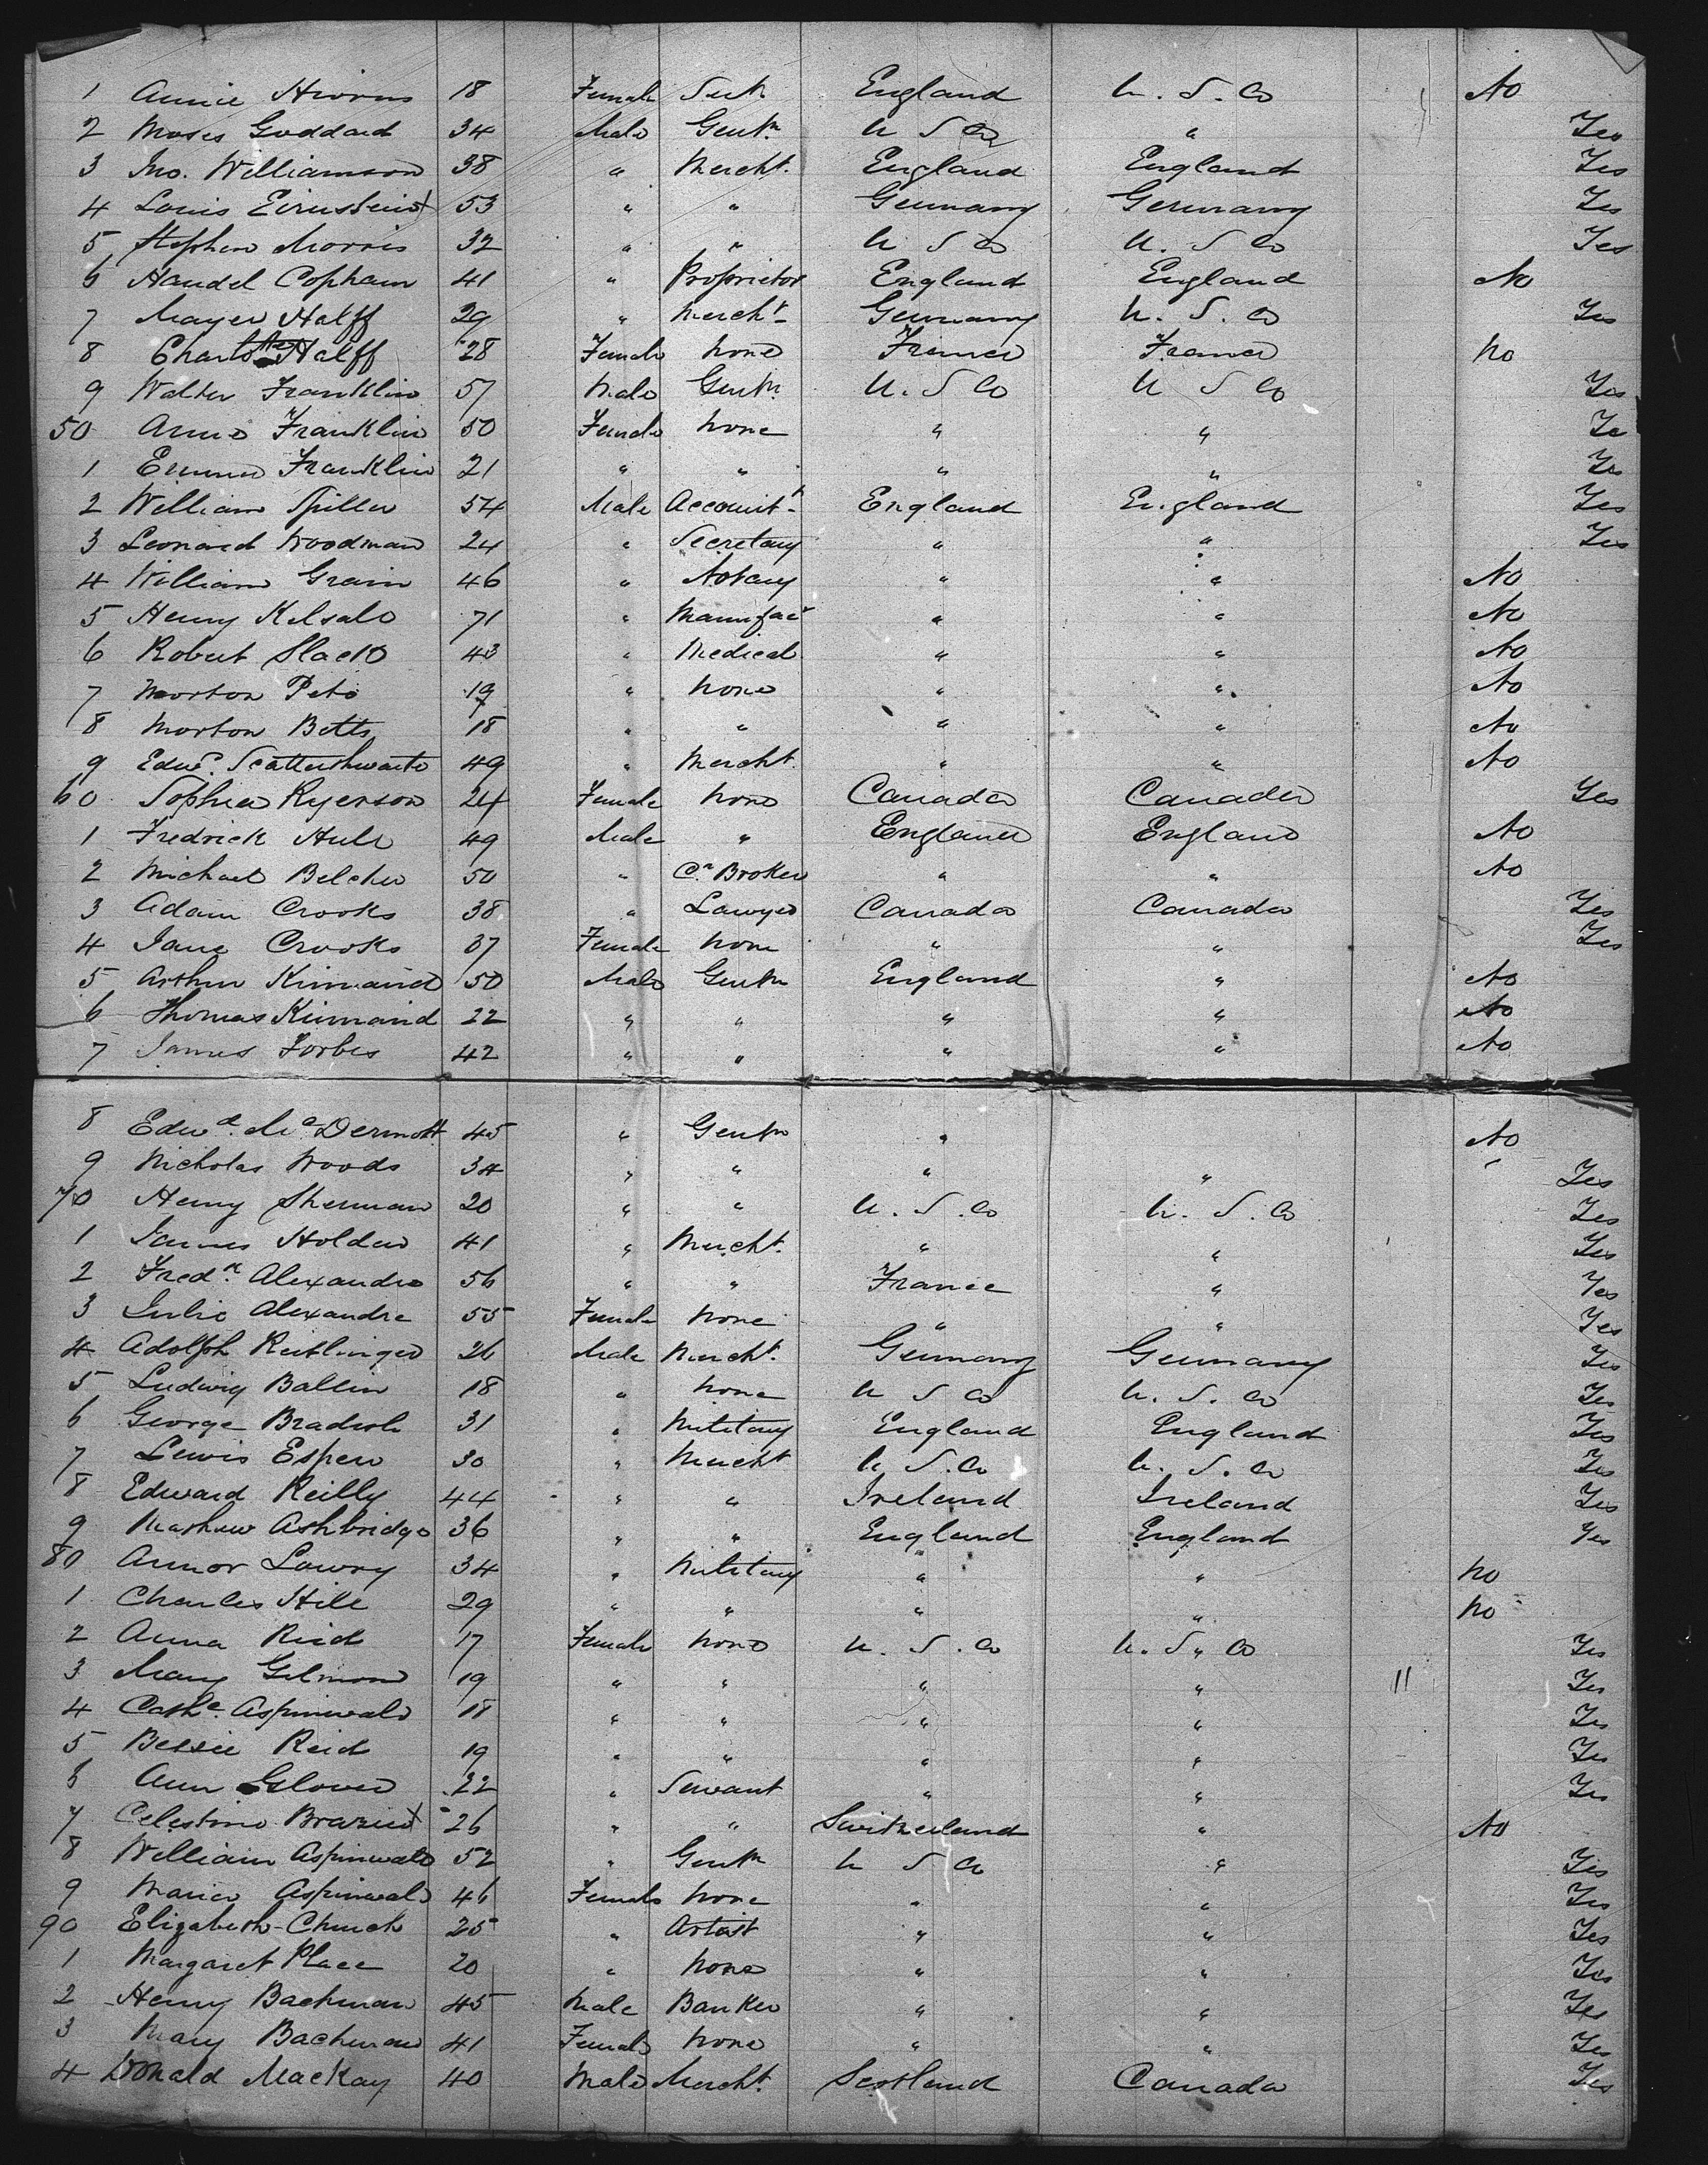 1 Annie 18 Female England U. S. Co No
2 Moses Goddard 34 Male Gentn. U S Co " Yes
3 Jno. Williamson 38 " Mercht. England England Yes
4 Louis 53 " " Germany Germany Yes
5 Stephen Morris 32 " " U S Co U. S Co Yes
6 Handel Copham 41 " Proprietor England England No
7 Mayer Halff 29 " Mercht. Germany U. S. Co Yes
8 Charlotte Halff 28 Female None France France No
9 Walter Franklin 57 Male Gentn. U. S Co U S Co Yes
50 Annie Franklin 50 Female None " " Ye
1 Emma Franklin 21 " " " " Yes
2 William Spiller 54 Male Accountt. England England Yes
3 Leonard Woodman 24 " Secretary " " Yes
4 William Grain 46 " Notary " " No
5 Henry Kelsall 71 " Manufacr " " No
6 Robert Slack 43 " Medical " " No
7 Morton Peto 19 " None " " No
8 Morton Betts 18 " " " " No
9 Edwd. Scatterthwaite 49 " Mercht. " " No
60 Sophia Ryerson 24 Female None Canada Canada Yes
1 Fredrick Hull 49 Male " England England No
2 Michael Belcher 50 " Cn. Broker " " No
3 Adam Crooks 38 " Lawyer Canada Canada Yes
4 Jane Crooks 37 Female None " " Yes
5 Arthur Kinnaird 50 Male Gentn England " No
6 Thomas Kinnaird 22 " " " " No
7 James Forbes 42 " " " " No
8 Edwd. McDermott 45 " Gentn " No
9 Nicholas Woods 34 " " " " Yes
70 Henry Sherman 20 " " U. S. Co U. S. Co Yes
1 James Holden 41 " Mercht. " " Yes
2 Fredk. Alexandre 56 " " France " Yes
3 Julie Alexandre 55 Female None " " Yes
4 Adolph Reitlinger 26 Male Mercht. Germany Germany Yes
5 Ludwig Ballin 18 " None U S Co U. S. Co Yes
6 George 31 " Military England England Yes
7 Lewis Espen 30 " Mercht U S. Co U. S. Co Yes
8 Edward Reilly 44 " " Ireland Ireland Yes
9 Mathew Ashbridge 36 " " England England Yes
80 Lowry 34 " Military " " No
1 Charles Hill 29 " " " " No
2 Anna Reid 17 Female None U. S. Co U. S. " Co Yes
3 Mary 19 " " " " 11 Yes
4 Cathe. Aspinwall 18 " " " " Yes
5 Bessie Reid 19 " " " " Yes
6 Ann Glover 22 " Servant " " Yes
7 Celestine 26 " " Switzerland " No
8 William Aspinwall 52 " Gentn U S Co " Yes
9 Maria Aspinwall 46 Female None " " Yes
90 Elizabeth Church 25 " Artist " " Yes
1 Margaret Place 20 " None " " Yes
2 Henry Bachman 45 Male Banker " " Yes
3 Mary Bachman 41 Female None " " Yes
4 Donald MacKay 40 Male Mercht. Scotland Canada Yes